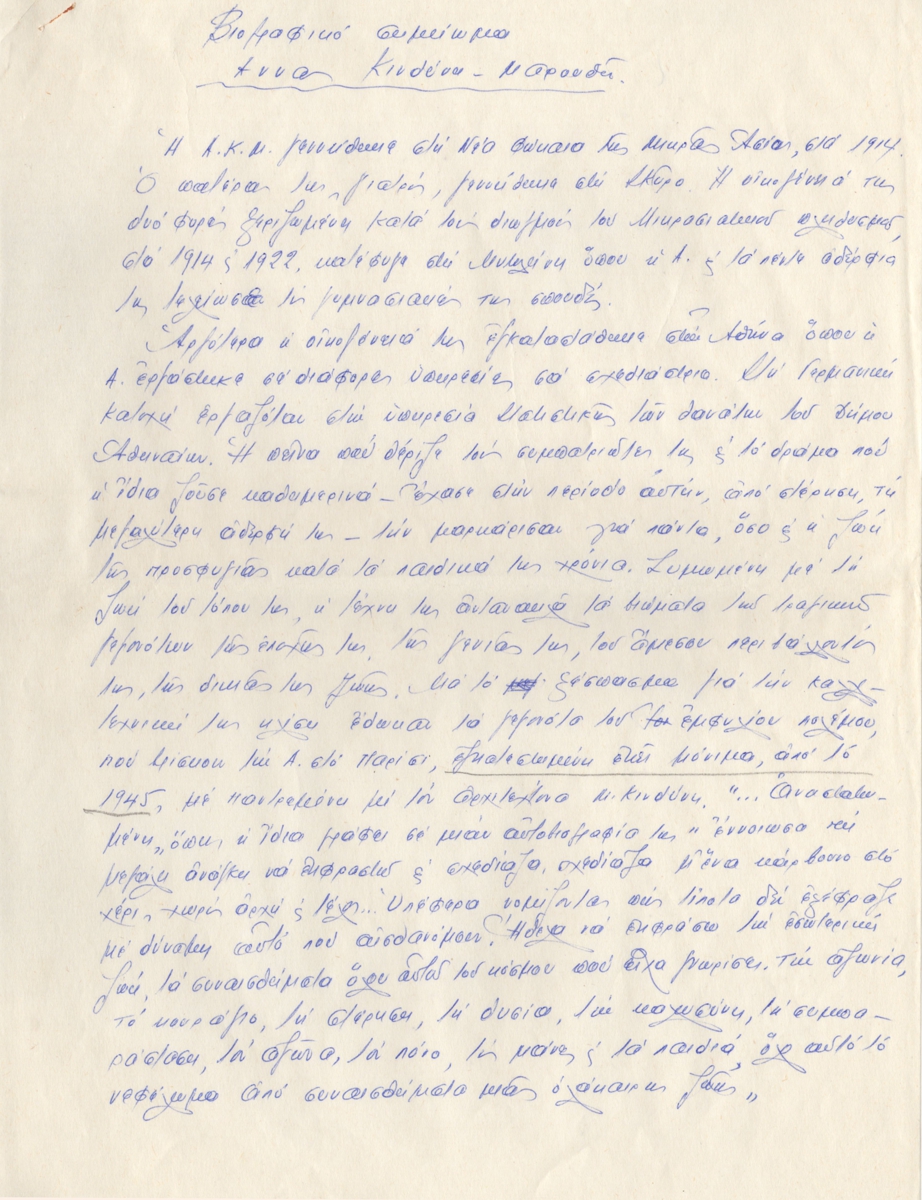 Βιογραφικό σημείωμα
Άννα Κινδύνη - Μαρουδή.
Ἡ Α.Κ.Μ. γεννήθηκε στή Νέα Φώκαια τῆς Μικρᾶς Ἀσίας, στά 1914.
Ὁ πατέρας της, γιατρός, γεννήθηκε στή Σκῦρο. Ἡ οἰκογένειά της
δυό φορές ξεριζωμένη κατά τούς διωγμούς τοῦ Μικρασιατικοῦ πληθυσμοῦ,
στά 1914 & 1922, κατέφυγε στή Μυτιλήνη ὅπου ἡ Α. & τά πέντε ἀδέρφια
της τελείωσε τίς γυμνασιακές της σπουδές.
Ἀργότερα ἡ οἰκογένειά της ἐγκαταστάθηκε στήν Ἀθήνα ὅπου ἡ
Α. ἐργάστηκε σέ διάφορες ὑπηρεσίες σά σχεδιάστρια. Στή Γερμανική
κατοχή ἐργαζόταν στήν ὑπηρεσία Στατιστικῆς τῶν θανάτων τοῦ Δήμου
Ἀθηναίων. Ἡ πεῖνα πού θέριζε τούς συμπατριῶτες της & τό δράμα πού
ἡ ἴδια ζοῦσε καθημερινά - ἔχασε στήν περίοδο αὐτήν, ἀπό στέρηση, τή
μεγαλύτερη ἀδερφή της - τήν μαρκάρισαν γιά πάντα, ὅσο & ἡ ζωή
τῆς προσφυγιᾶς κατά τά παιδικά της χρόνια. Ζυμωμένη μέ τή
ζωή τοῦ τόπου της, ἡ τέχνη της ἀντανακλᾶ τά βιώματα τῶν τραγικῶν
γεγονότων τῆς ἐποχῆς της, τῆς γενιᾶς της, τοῦ ἄμεσου περιβάλλοντός
της, τῆς δικιᾶς της ζωῆς. Μά τό ξέσπασμα γιά τήν καλλι-
τεχνική της κλίση ἔδωκαν τά γεγονότα τοῦ ἐμφυλίου πολέμου,
πού βρίσκουν τήν Α. στό Παρίσι, ἐγκατεστημένη ἐκεῖ μόνιμα, ἀπό τό
1945, μέ παντρεμένη μέ τόν ἀρχιτέκτονα Μ. Κινδύνη. "... Ἀναστατω-
μένη", ὅπως ἡ ἴδια γράφει σέ μιάν αὐτοβιογραφία της "ἔννοιωσα τή
μεγάλη ἀνάγκη νά ἐκφραστῶ & σχεδίαζα, σχεδίαζα μ' ἕνα κάρβουνο στό
χέρι, χωρίς ἀρχή & τέλος... Ὑπέφερα νομίζοντας πώς τίποτα δέν ἐξέφραζε
μέ δύναμη αὐτό πού αἰσθανόμουν. Ἤθελα νά ἐκφράσω τήν ἐσωτερική
ζωή, τά συναισθήματα ὅλου αὐτοῦ τοῦ κόσμου πού εἶχα γνωρίσει. Τήν ἀγωνία,
τό κουράγιο, τή στέρηση, τή θυσία, τήν καλωσύνη, τή συμπα-
ράσταση, τόν ἀγῶνα, τόν πόνο, τίς μάνες & τά παιδιά, ὅλο αὐτό τό
νεφέλωμα ἀπό συναισθήματα μιᾶς ὁλόκληρης ζωῆς"